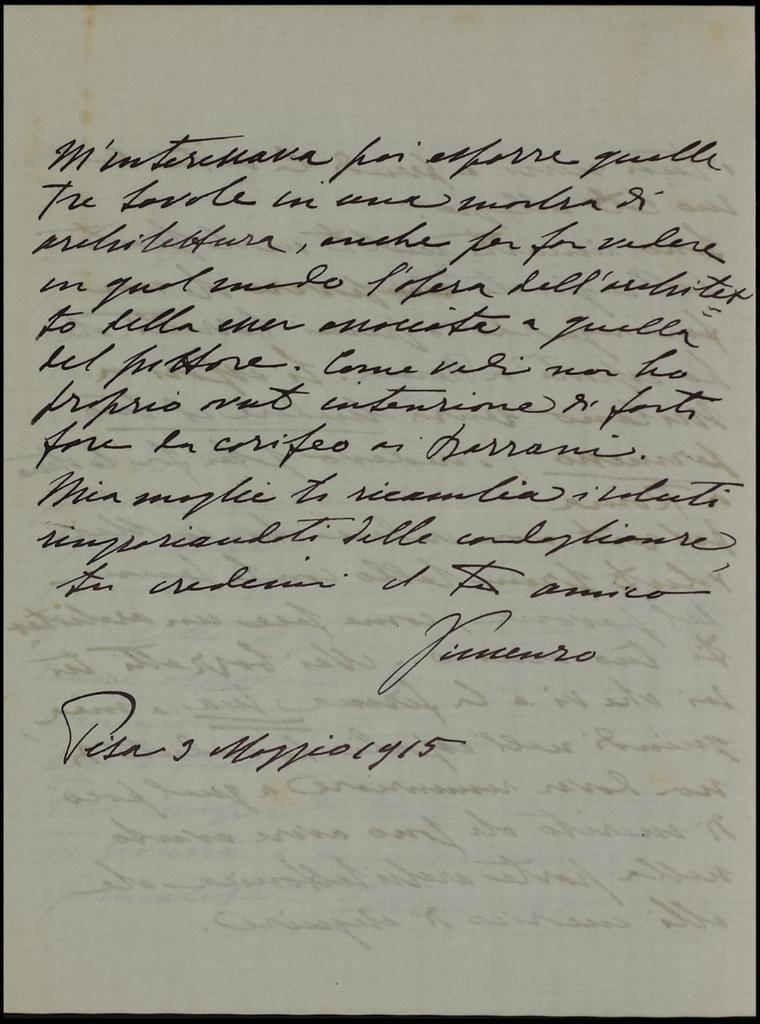 M'interessava poi esporre quelle
tre tavole in una mostra di
architettura, anche per far vedere
in qual modo l'opera dell'architet=
to della essere associata a quella
del pittore. Come vedi non ho
proprio avut intenzione di farti
fare da corifeo ai
Mia moglie ti ricambia i saluti
ringraziandoti delle condoglianze,
tu credimi il tuo amico
Vincenzo
Pisa 3 Maggio 1915